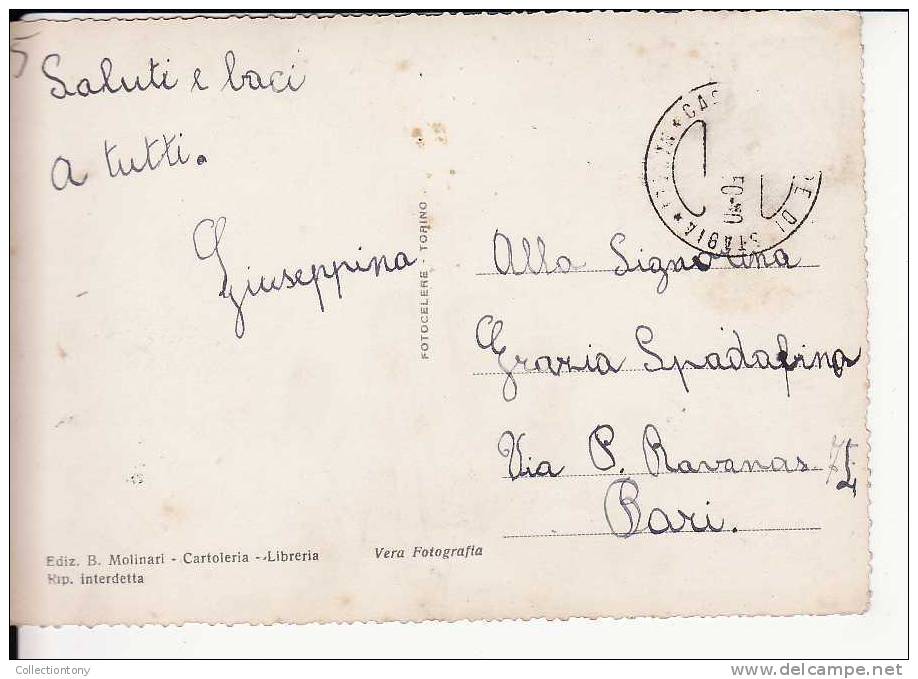 5
Saluti e baci
a tutti.
Giuseppina
FOTOCELERE - TORINO
CAS
RE DI STABIA
Alla Signorina
Grazia Spadafina
Via P. Ravanas
Bari.
Ediz. B. Molinari - Cartoleria - Libreria
Vera Fotografia
Rip. interdetta
Collectiontony
delcampe.net